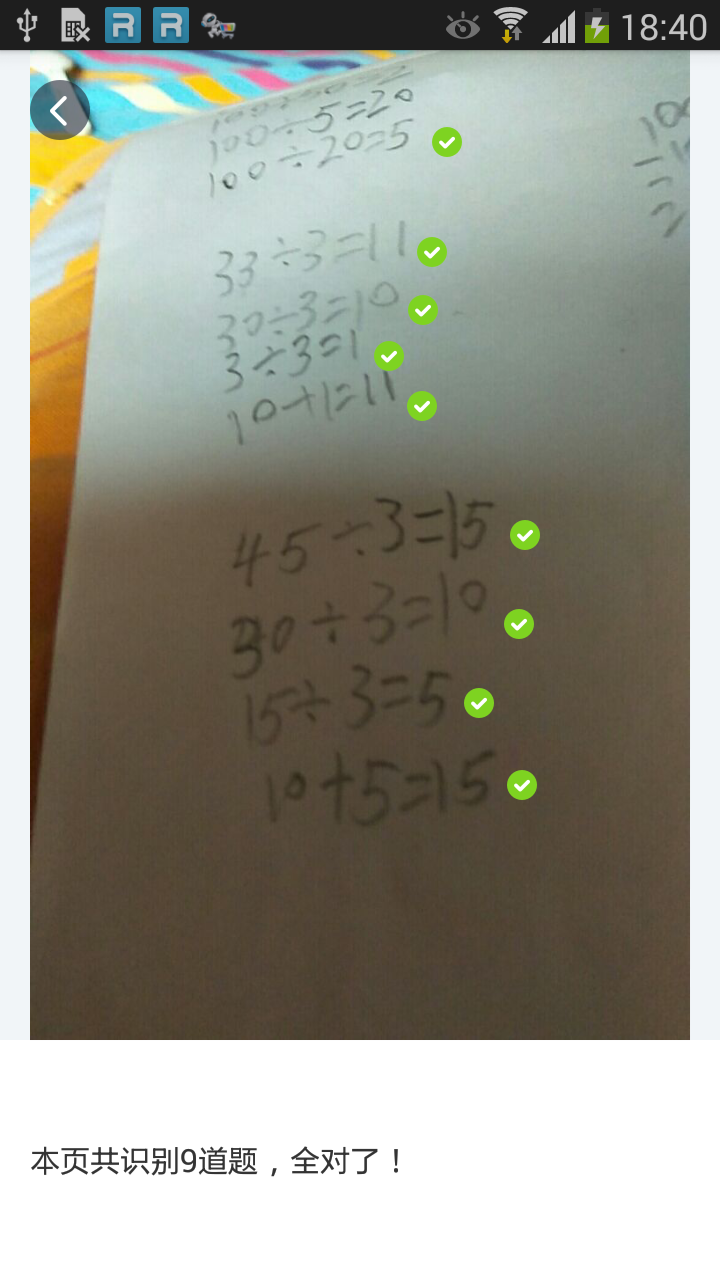 18:40
100÷5=20
100÷20=5
33÷3=11
30÷3=10
3÷3=1
10+1=11
45÷3=15
30÷3=10
15÷3=5
10+5=15
本页共识别9道题，全对了！